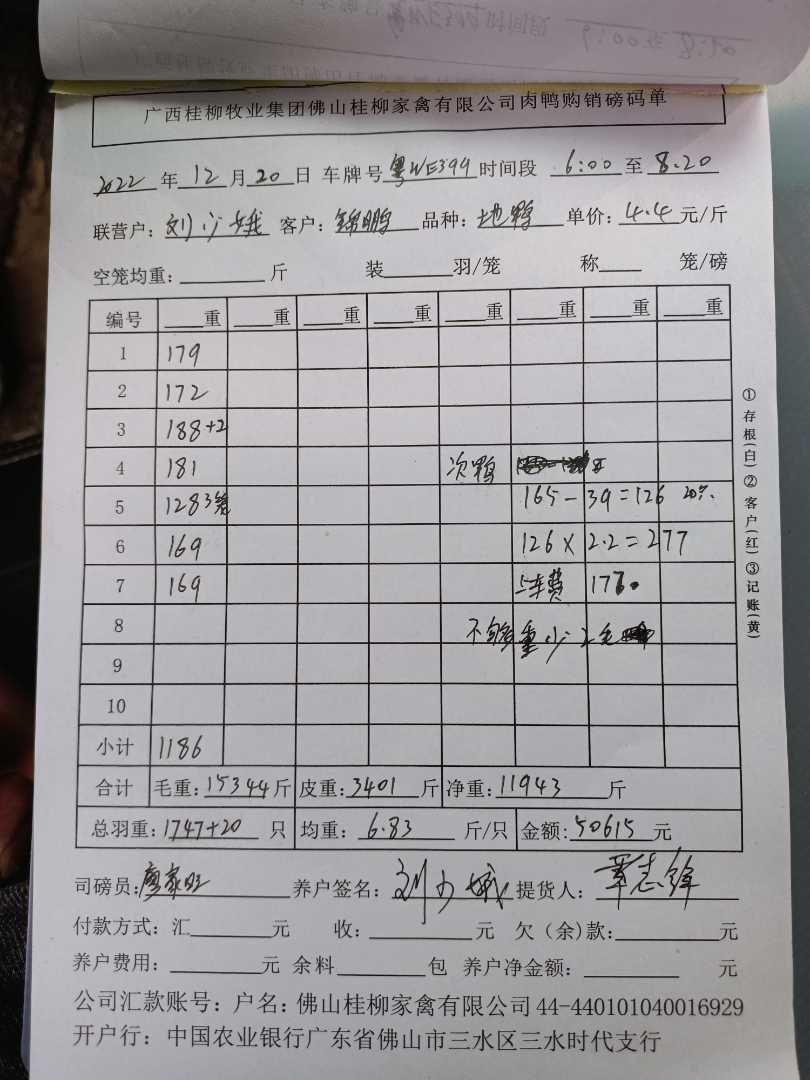 广西桂柳牧业集团佛山桂柳家禽有限公司肉鸭购销磅码单
2022 年 12 月 20 日 车牌号 粤WE399 时间段 6:00 至 8.20
联营户: 刘少娥 客户: 锦鹏 品种: 地鸭 单价: 4.4 元/斤
空笼均重: 斤 装 羽/笼 称 笼/磅
编号 重 重 重 重 重 重 重 重
1 179
2 172
3 188+2
4 181 次鸭
5 128 3笼 165-39=126 20只
6 169 126×2.2=277
7 169 上车费 176
8 不够重少2毛
9
10
小计 1186
合计 毛重: 15344 斤 皮重: 3401 斤 净重: 11943 斤
总羽重: 1747+20 只 均重: 6.83 斤/只 金额: 50615 元
司磅员: 廖家旺 养户签名: 刘少娥 提货人: 覃志锋
付款方式: 汇 元 收: 元 欠(余)款: 元
养户费用: 元 余料 包 养户净金额: 元
公司汇款账号: 户名: 佛山桂柳家禽有限公司 44-440101040016929
开户行: 中国农业银行广东省佛山市三水区三水时代支行
①存根(白)②客户(红)③记账(黄)